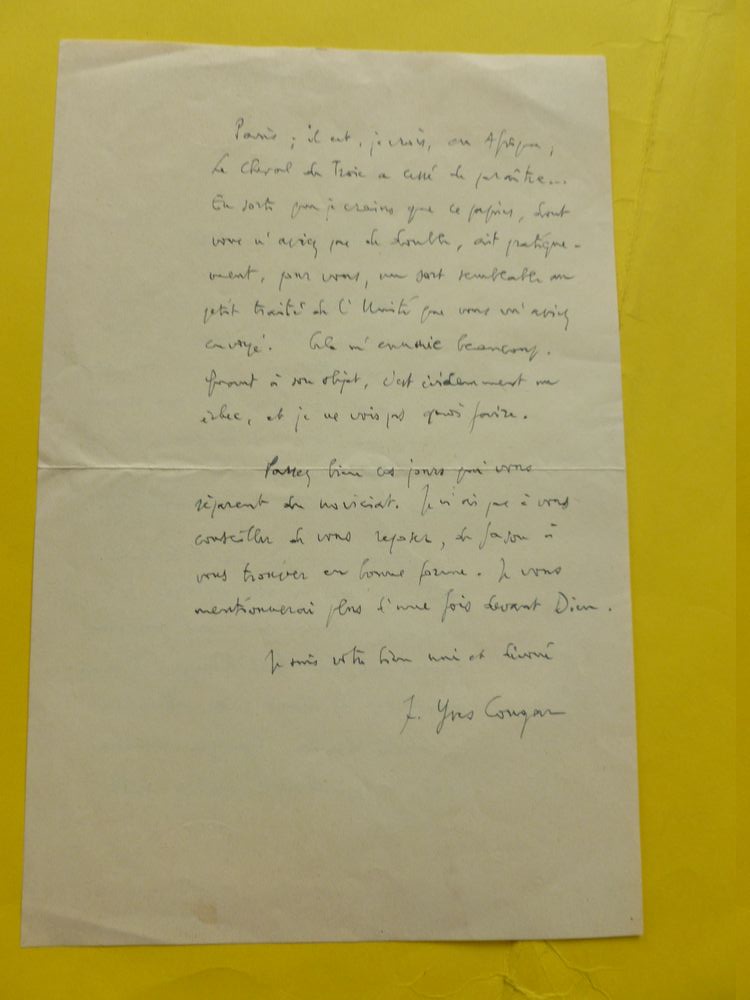 Paris ; il est, je crois, en Afrique ;
Le Cheval de Troie a cessé de paraître...
En sorte que je crains que ce papier, dont
vous n'aviez pas de double, ait pratique-
ment, pour vous, un sort semblable au
petit traité de l'Unité que vous m'aviez
envoyé. Cela m'ennuie beaucoup.
Quant à son objet, c'est évidemment un
échec, et je ne vois pas quoi faire.
Passez bien ces jours qui vous
séparent du noviciat. Je n'ai pas à vous
conseiller de vous reposer, de façon à
vous trouver en bonne forme. Je vous
mentionnerai plus d'une fois devant Dieu.
Je suis votre bien uni et dévoué
f. Yves Congar